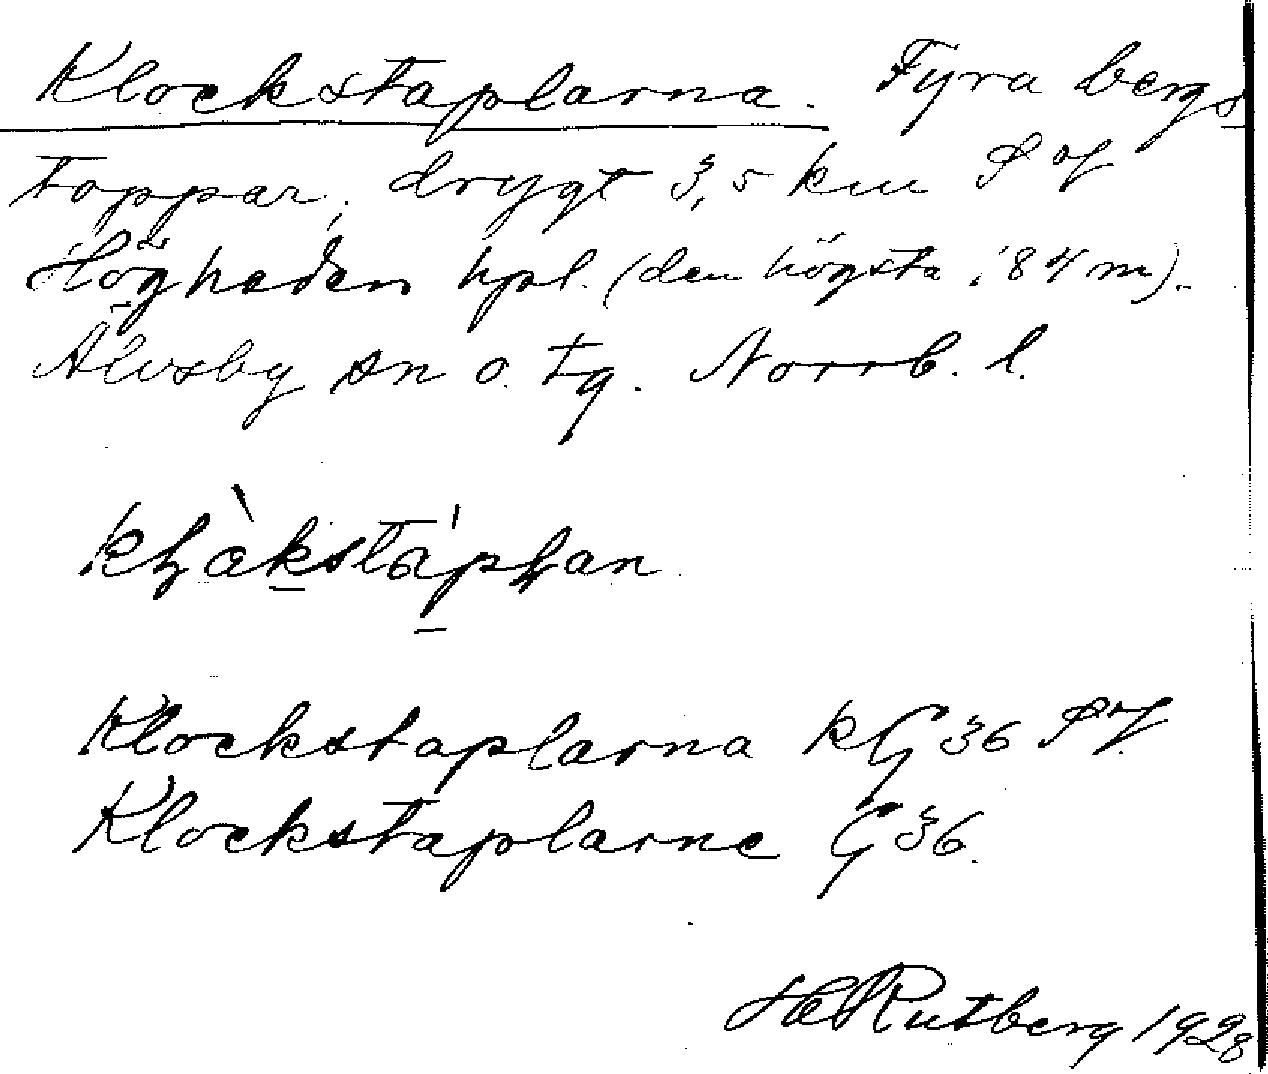 Klockstaplarna. Fyra bergs
toppar, drygt 3,5 km S of
Högheden hpl. (den högsta 184 m).
Älvsby sn o. tg. Norrb. l.
Klockstaplarna kG 36 SV.
Klockstaplarne G 36.
H Rutberg 1928